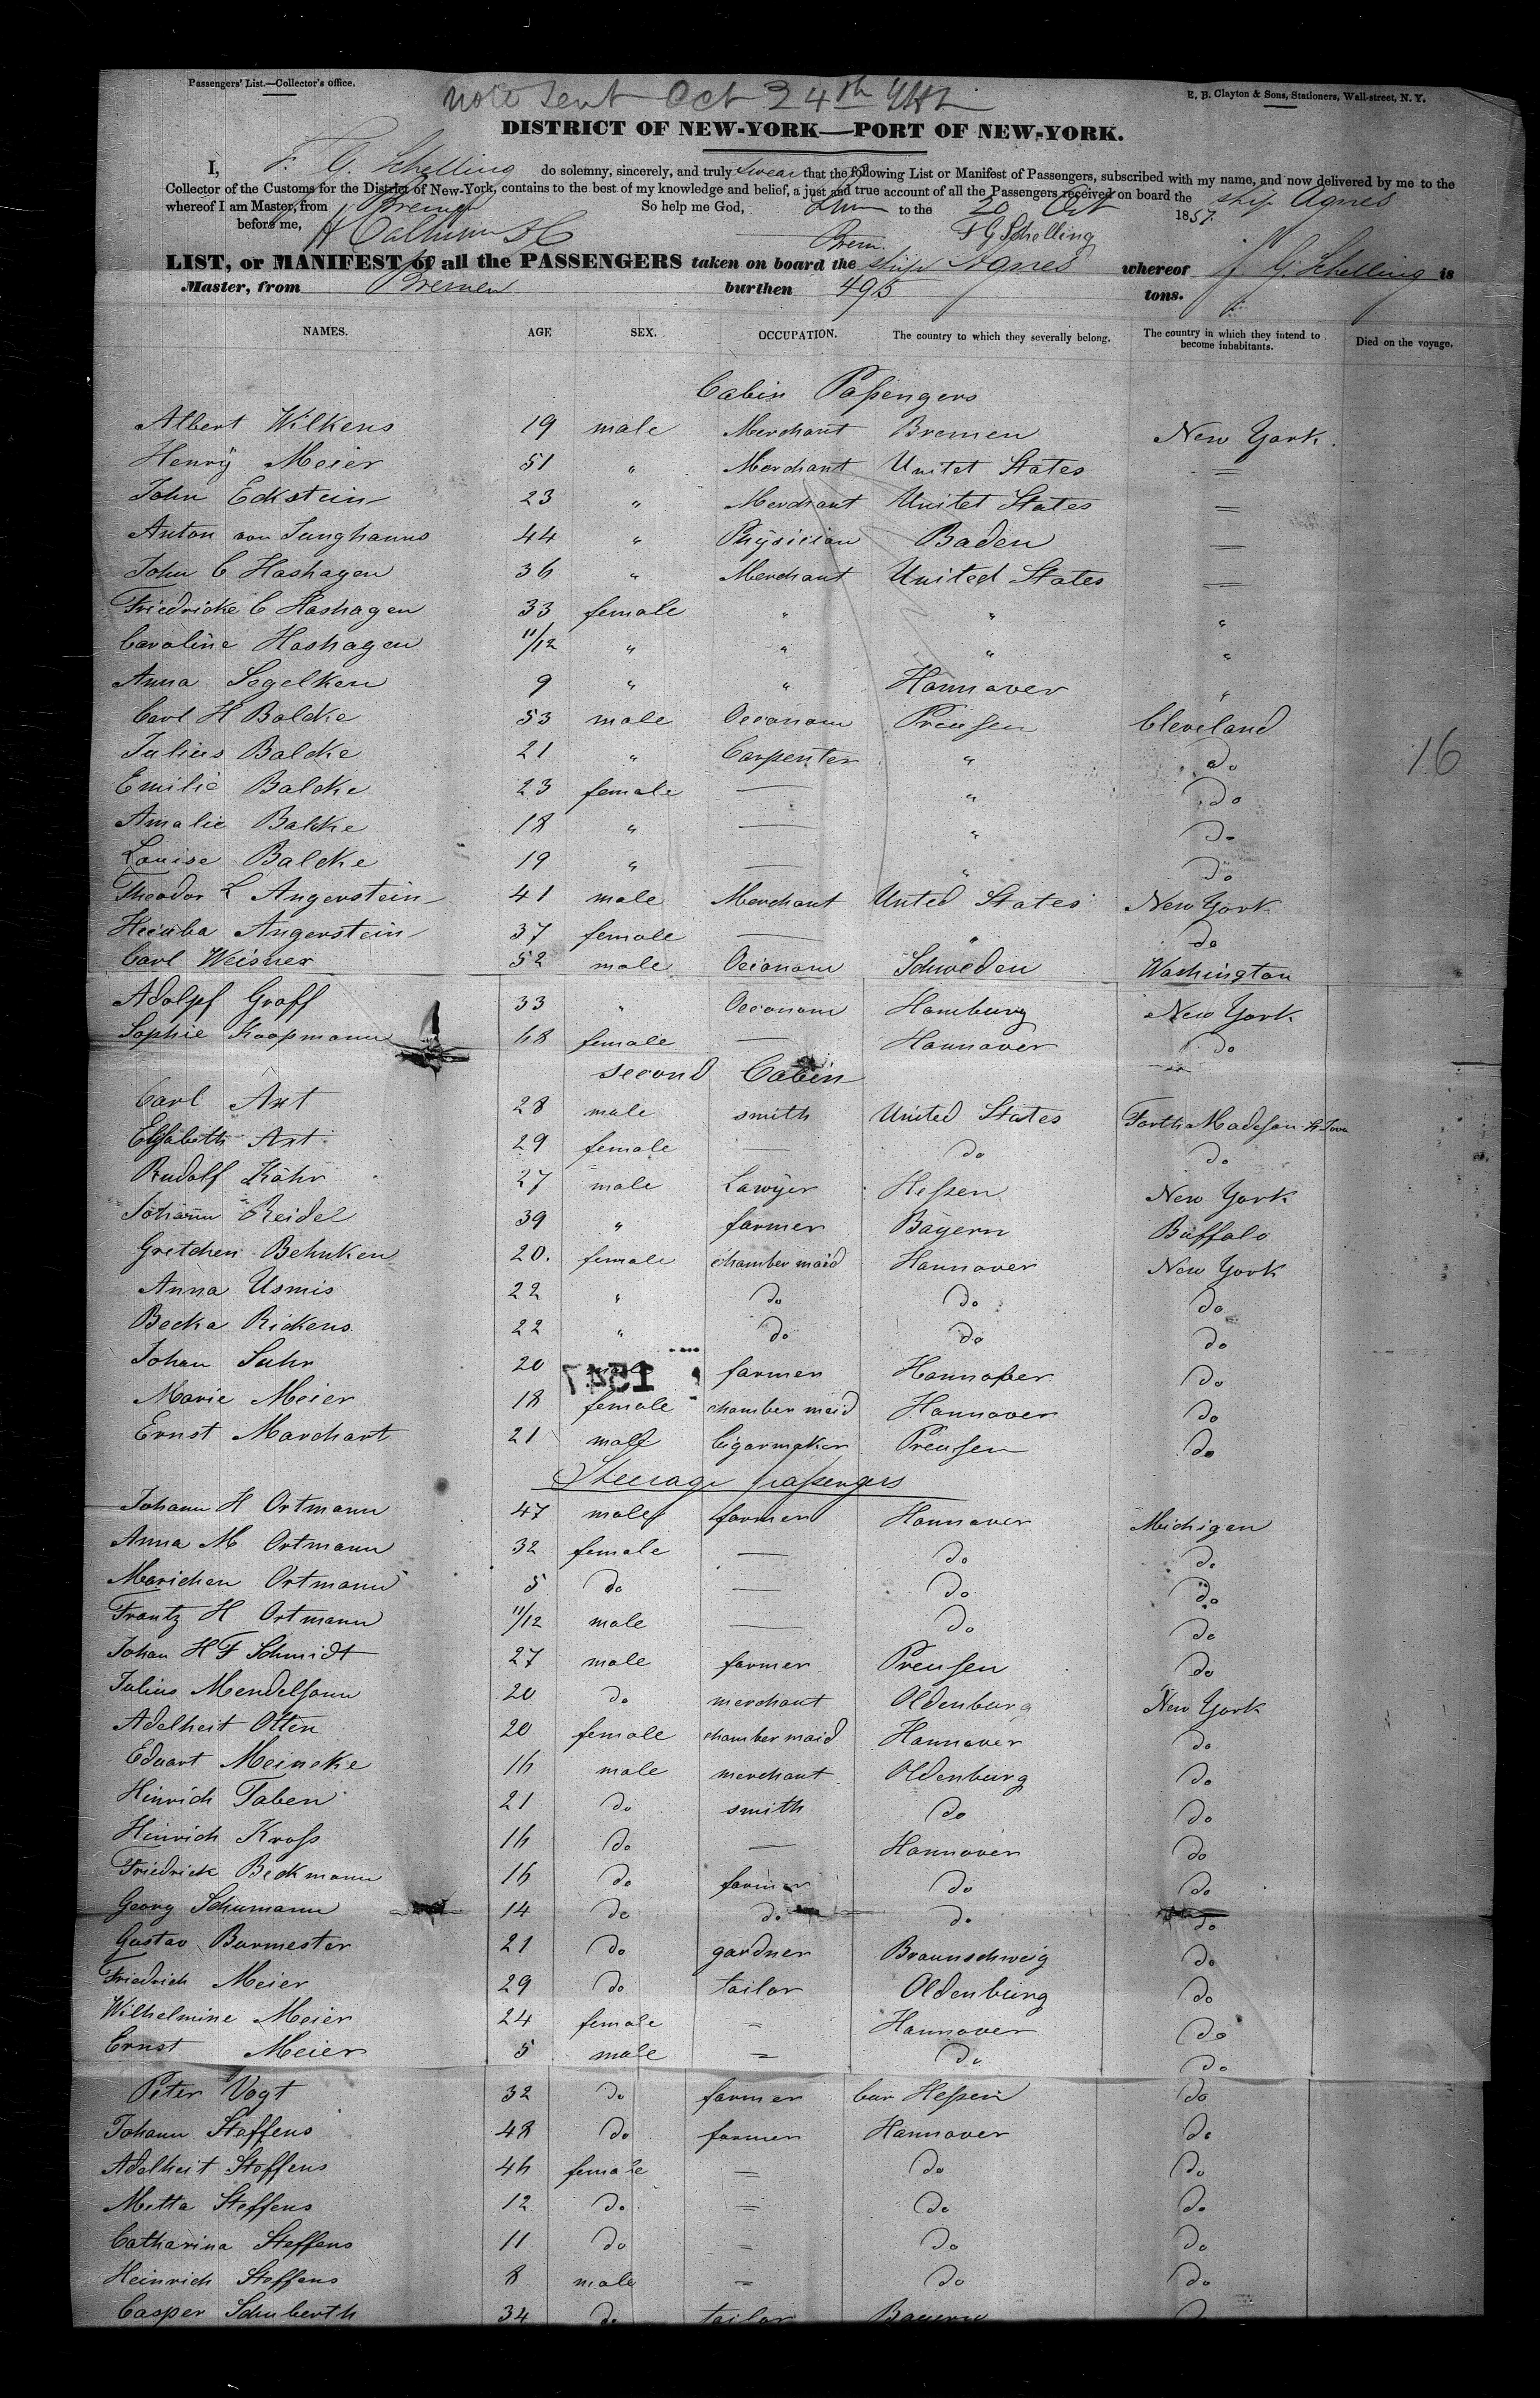 Passengers' List.—Collector's office.
Note sent Oct 24th
E. B. Clayton & Sons, Stationers, Wall-street, N. Y.
DISTRICT OF NEW-YORK—PORT OF NEW-YORK.
I, F. G. Schelling do solemny, sincerely, and truly swear that the following List or Manifest of Passengers, subscribed with my name, and now delivered by me to the
Collector of the Customs for the District of New-York, contains to the best of my knowledge and belief, a just and true account of all the Passengers received on board the ship Agnes
whereof I am Master, from Bremen So help me God, to the 20 Oct 1857.
before me, F G Schelling
Brem.
LIST, or MANIFEST of all the PASSENGERS taken on board the ship Agnes whereof F. G. Schelling is
Master, from Bremen burthen 495 tons.
NAMES. AGE SEX. OCCUPATION. The country to which they severally belong. The country in which they intend to become inhabitants. Died on the voyage.
Cabin Passengers
Albert Wilkens 19 male Merchant Bremen New York.
Henrÿ Meier 51 " Merchant Unitet States =
John Eckstein 23 " Merchant Unitet States =
Anton von Junghanns 44 " Phÿsician Baden =
John C Hashagen 36 " Merchant United States =
Friedricke C Hashagen 33 female " " "
Caroline Hashagen 11/12 " " " "
Anna Segelken 9 " " Hannover "
Carl H Balcke 53 male Oeconom Preussen Cleveland
Julius Balcke 21 " Carpenter " do
16
Emilie Balcke 23 female — " do
Amalie Balcke 18 " — " do
Louise Balcke 19 " — " do
Theodor L Angerstein 41 male Merchant United States New York
Hecuba Angerstein 37 female — " do
Carl Weisner 52 male Oeconom Schweden Washington
Adolpf Graff 33 " Oeconom Hamburg New York
Sophie Koopmann 68 female — Hannover do
second Cabin
Carl Axt 28 male smith United States Forth Madeson
Elisabeth Axt 29 female — do do
Rudolf Köhr 27 male Lawÿer Hessen New York
Johann Reidel 39 " farmer Bayern Buffalo
Gretchen Behnken 20. female chamber maid Hannover New York
Anna Usmis 22 " do do do
Becka Rickens 22 " do do do
Johan Suhr 20 farmer Hannover do
1547
Marie Meier 18 female chamber maid Hannover do
Ernst Marchart 21 male Cigarmaker Preussen do
Steerage passengers
Johann H Ortmann 47 male farmer Hannover Michigan
Anna M Ortmann 32 female — do do
Marichen Ortmann 5 do — do do
Frantz H Ortmann 11/12 male — do do
Johan H F Schmidt 27 male farmer Preussen do
Julius Mendelssonn 20 do merchant Oldenburg New York
Adelheit Otten 20 female chamber maid Hannover do
Eduart Meineke 16 male merchant Oldenburg do
Hinrich Taben 21 do smith do do
Hinrich Kross 16 do — Hannover do
Friedrick Beckmann 16 do farmer do do
Georg Schumann 14 do do do do
Gustav Burmester 21 do gardner Braunschweig do
Friedrich Meier 29 do tailor Oldenburg do
Wilhelmine Meier 24 female = Hannover do
Ernst Meier 5 male = do do
Peter Vogt 32 do farmer Cur Hessen do
Johann Steffens 48 do farmer Hannover do
Adelheit Steffens 46 female = do do
Metta Steffens 12 do = do do
Catharina Steffens 11 do = do do
Heinrich Steffens 8 male = do do
Casper Schuberth 34 do tailor Bayern do